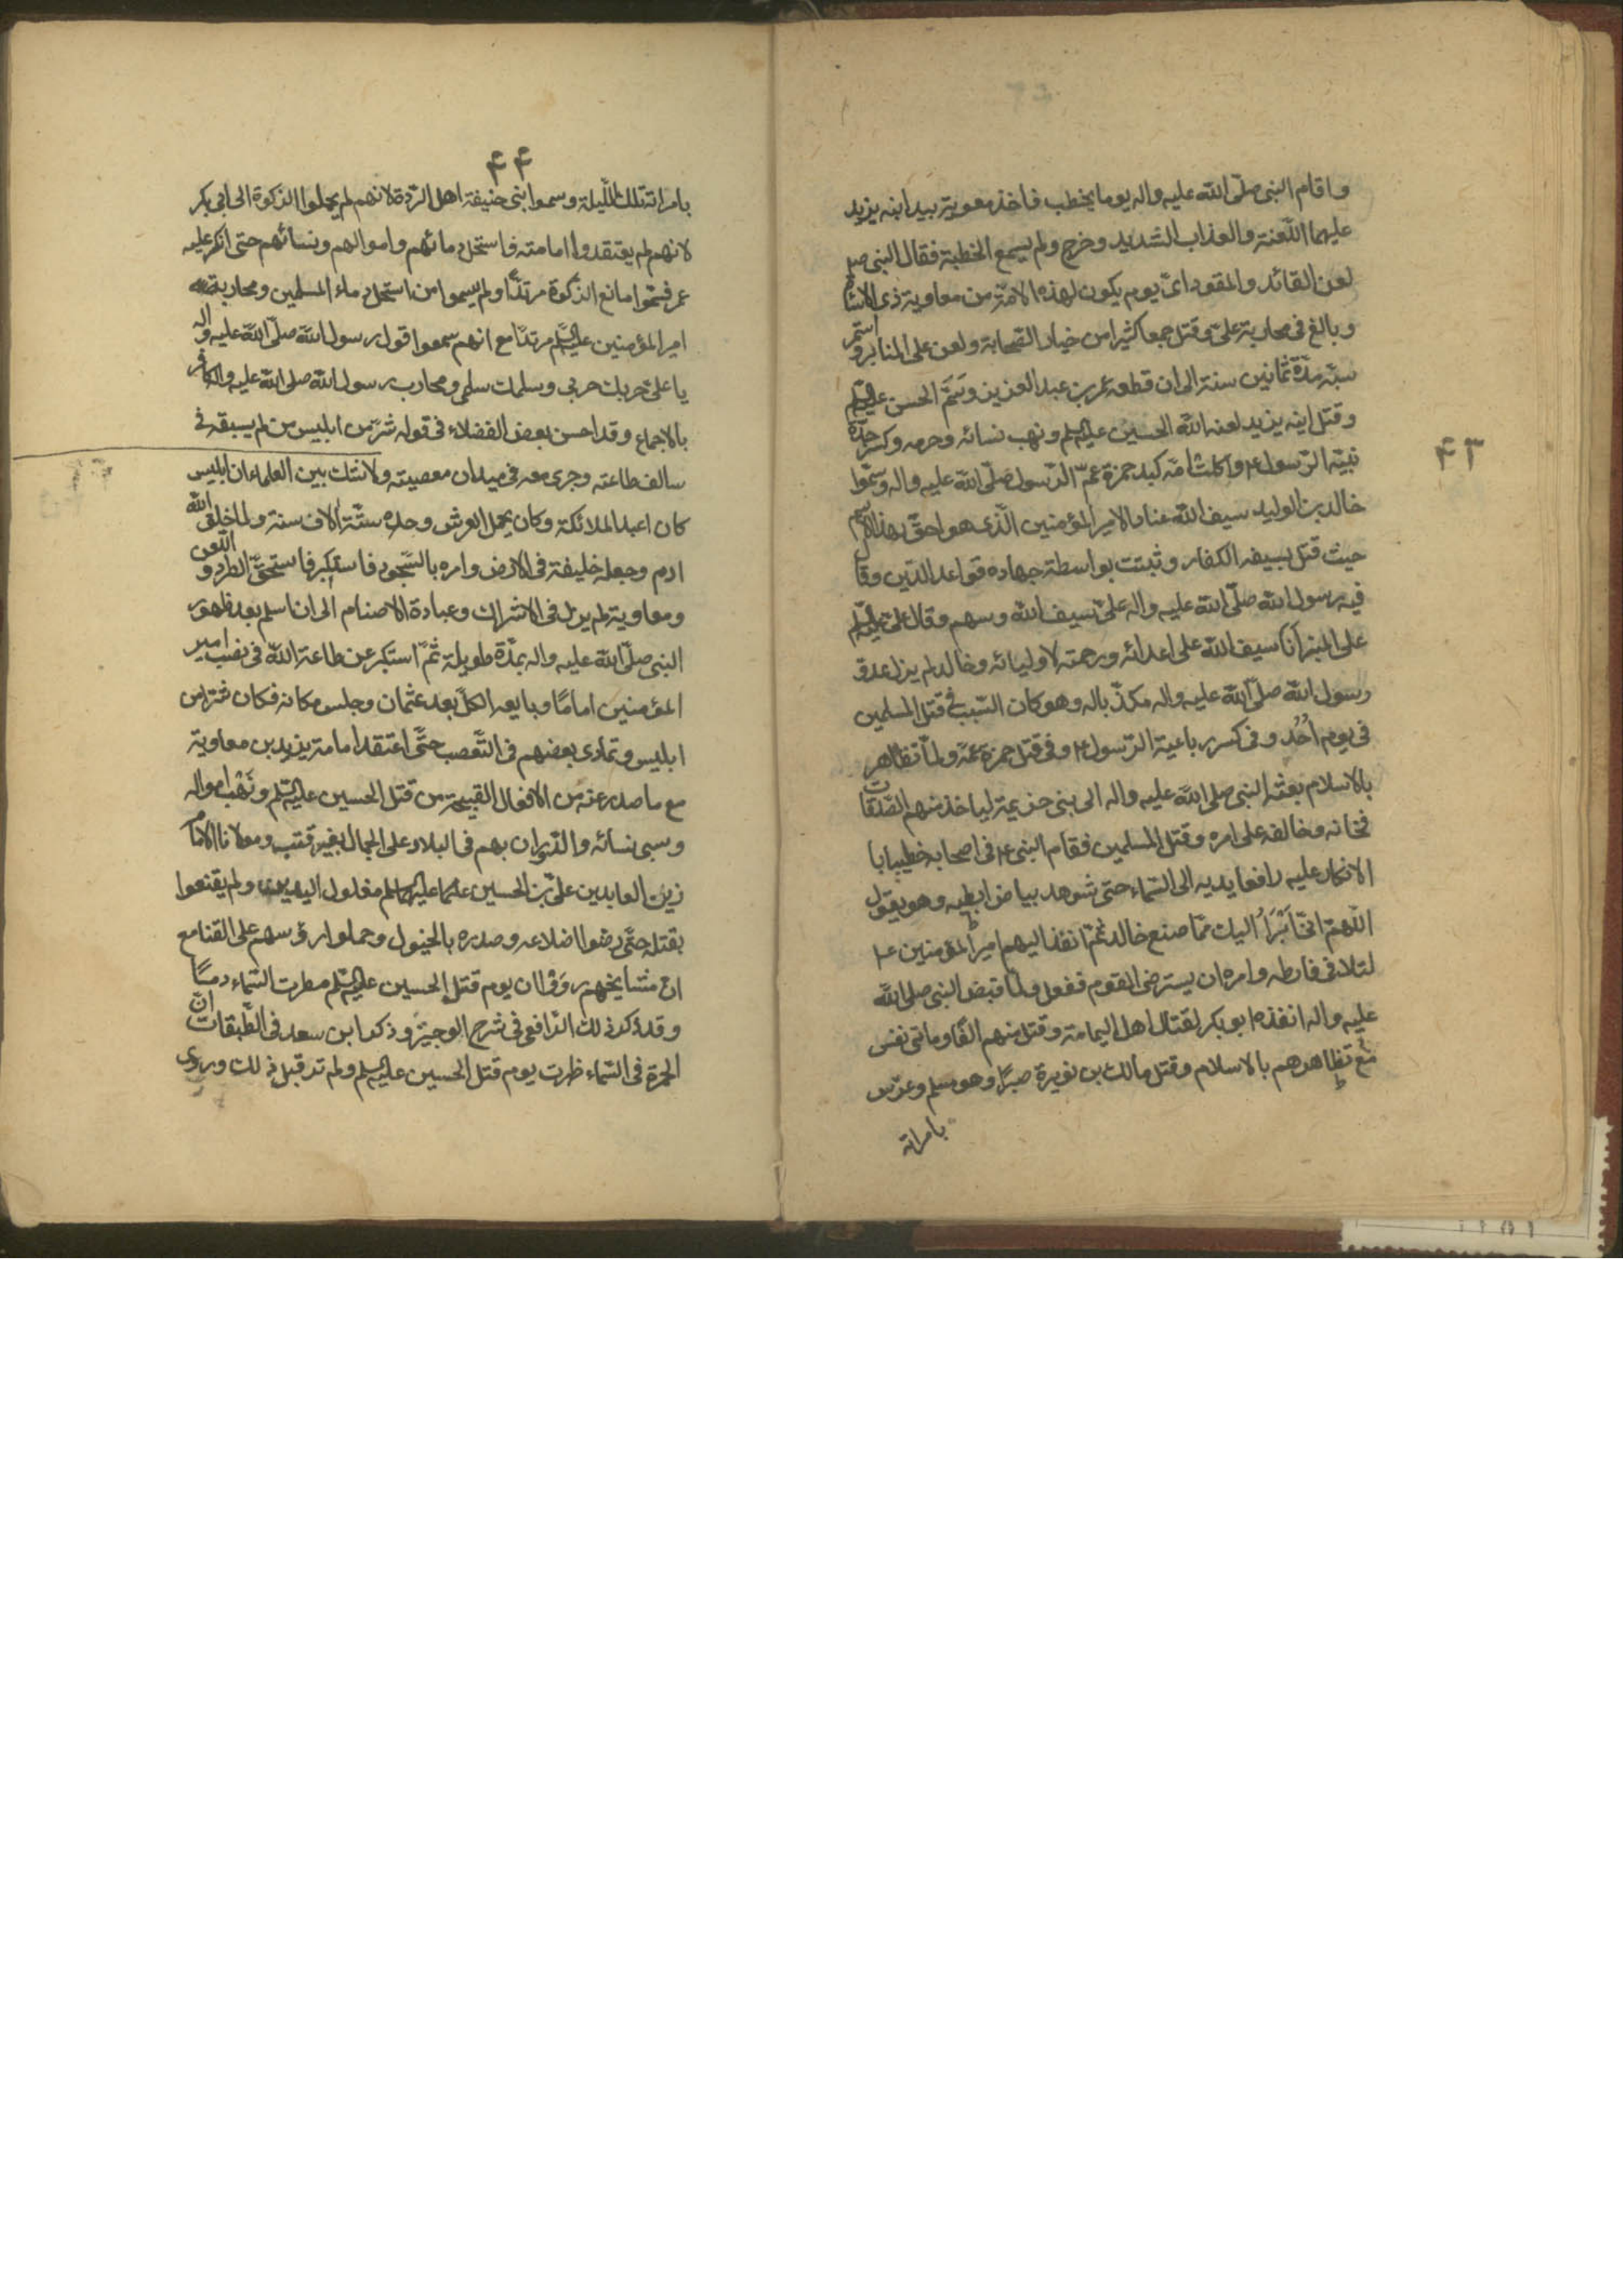 ۴۳
و اقام النبی صلّی اللّه علیه واله یوما یخطب فاخذ معویة بید ابنه یزید
علیهما اللّعنة والعذاب الشدید وخرج ولم یسمع الخطبة فقال النبی صلم
لعن القائد والمقود ایّ یوم یکون لهذه الامّة من معاویة ذی الاستاه
وبالغ فی محاربة علیّ وقتل جمعا کثیرا من خیار الصّحابة ولعن علی المنابر و استمر
سبّه مدّة ثمانین سنة الی ان قطعه عمر بن عبد العزیز وسَمَّ الحسن علیه السّلم
وقتل ابنه یزید لعنه اللّه الحسین علیه السلم ونهب نسائه وحرمه وکسر جدّه
ثنیّة الرّسول ع واکلت امّه کبد حمزة عمّ الرّسول صلّی اللّه علیه واله وسمّوا
خالد بن الولید سیف اللّه عنادا لامیر المؤمنین الّذی هو احقّ بهذا الاسم
حیث قتل بسیفه الکفار وثبتت بواسطة جهاده قواعد الدّین وقا
فیه رسول اللّه صلّی اللّه علیه واله علیّ سیف اللّه وسهم وقال علی علیه السّلم
علی المنبر اَنا سیف اللّه علی اعدائه ورحمته لاولیائه وخالد لم یزل عدوّ
رسول اللّه صلّی اللّه علیه واله مکذّبا له وهو کان السّبب فی قتل المسلمین
فی یوم اُحُد و فی کسر رباعیة الرّسول ع وفی قتل حمزة عمّه ولمّا تظاهر
بالاسلام بعثه النبی صلی اللّه علیه واله الی بنی جزیمة لیاخذ منهم الصّدقات
فخانه وخالفه علی امره وقتل المسلمین فقام النبی ع فی اصحابه خطیبا با
الانکار علیه رافعا یدیه الی السّماء حتی شوهد بیاض ابطیه وهو یقول
اللّهمّ انّی اَبْرَاُ الیك ممّا صنع خالد ثمّ انفذ الیهم امیر المؤمنین ع
لتلافی فارطه وامره ان یسترضی القوم ففعل ولمّا قبض النبی صلی اللّه
علیه واله انفذه ابو بکر لقتال اهل الیمامة وقتل منهم الفًا وماتی نفس
مع تظاهرهم بالاسلام وقتل مالك بن نویرة صبرًا وهو مسلم وعرّس
بامراته
۴۴
بامراته تلك اللّیلة وسموا بنی حنیفة اهل الرّدة لانهم لم یحملوا الذکوة الی ابی بکر
لانهم لم یعتقدوا امامته فاستحل دمائهم واموالهم ونسائهم حتی انکر علیه
عمر فسمّوا مانع الذکوة مرتدًّا ولم یسموا من استحل دماء المسلمین ومحاربة
امیر المؤمنین علیه السّلم مرتدًّا مع انهم سمعوا قول رسول اللّه صلّی اللّه علیه و اله
یا علی حربك حربی وسلمك سلمی ومحارب رسول اللّه صلی اللّه علیه واله کافر
بالاجماع وقد احسن بعض الفضلاء فی قوله شرّ من ابلیس من لم یسبقه فی
سالف طاعته وجری معه فی میدان معصیته ولا نشك بین العلماء ان ابلیس
کان اعبد الملائکة وکان یحمل العرش وحده ستّة الاف سنة ولما خلق اللّه
ادم وجعله خلیفة فی الارض وامره بالسّجود فاستکبر فاستحقّ الطرد و اللّعن
ومعاویة لم یزل فی الاشراك وعبادة الاصنام الی ان اسلم بعد ظهور
النبی صلّی اللّه علیه واله بمدّة طویلة ثمّ استکبر عن طاعة اللّه فی نصب امیر
المؤمنین امامًا وبایعه الکلّ بعد عثمان وجلس مکانه فکان شرّا من
ابلیس وتمادی بعضهم فی التّعصب حتّی اعتقد امامة یزید بن معاویة
مع ما صدر عنه من الافعال القبیحة من قتل الحسین علیه السّلم ونَهْب امواله
وسبی نسائه والدّوران بهم فی البلاد علی الجمال بغیر قتب ومولانا الامام
زین العابدین علیّ بن الحسین علیهما السلم مغلول الیدین ولم یقنعوا
بقتله حتّی رضوا اضلاعه وصدره بالخیول وحملوا رؤسهم علی القنا مع
انّ مشایخهم روَوْا ان یوم قتل الحسین علیه السّلم مطرت السّماء دمًا
وقد ذکر ذلك الرّافعی فی شرح الوجیز وذکر ابن سعد فی الطّبقات انّ
الحمرة فی السّماء ظهرت یوم قتل الحسین علیه السلم ولم تر قبل ذلك وروی